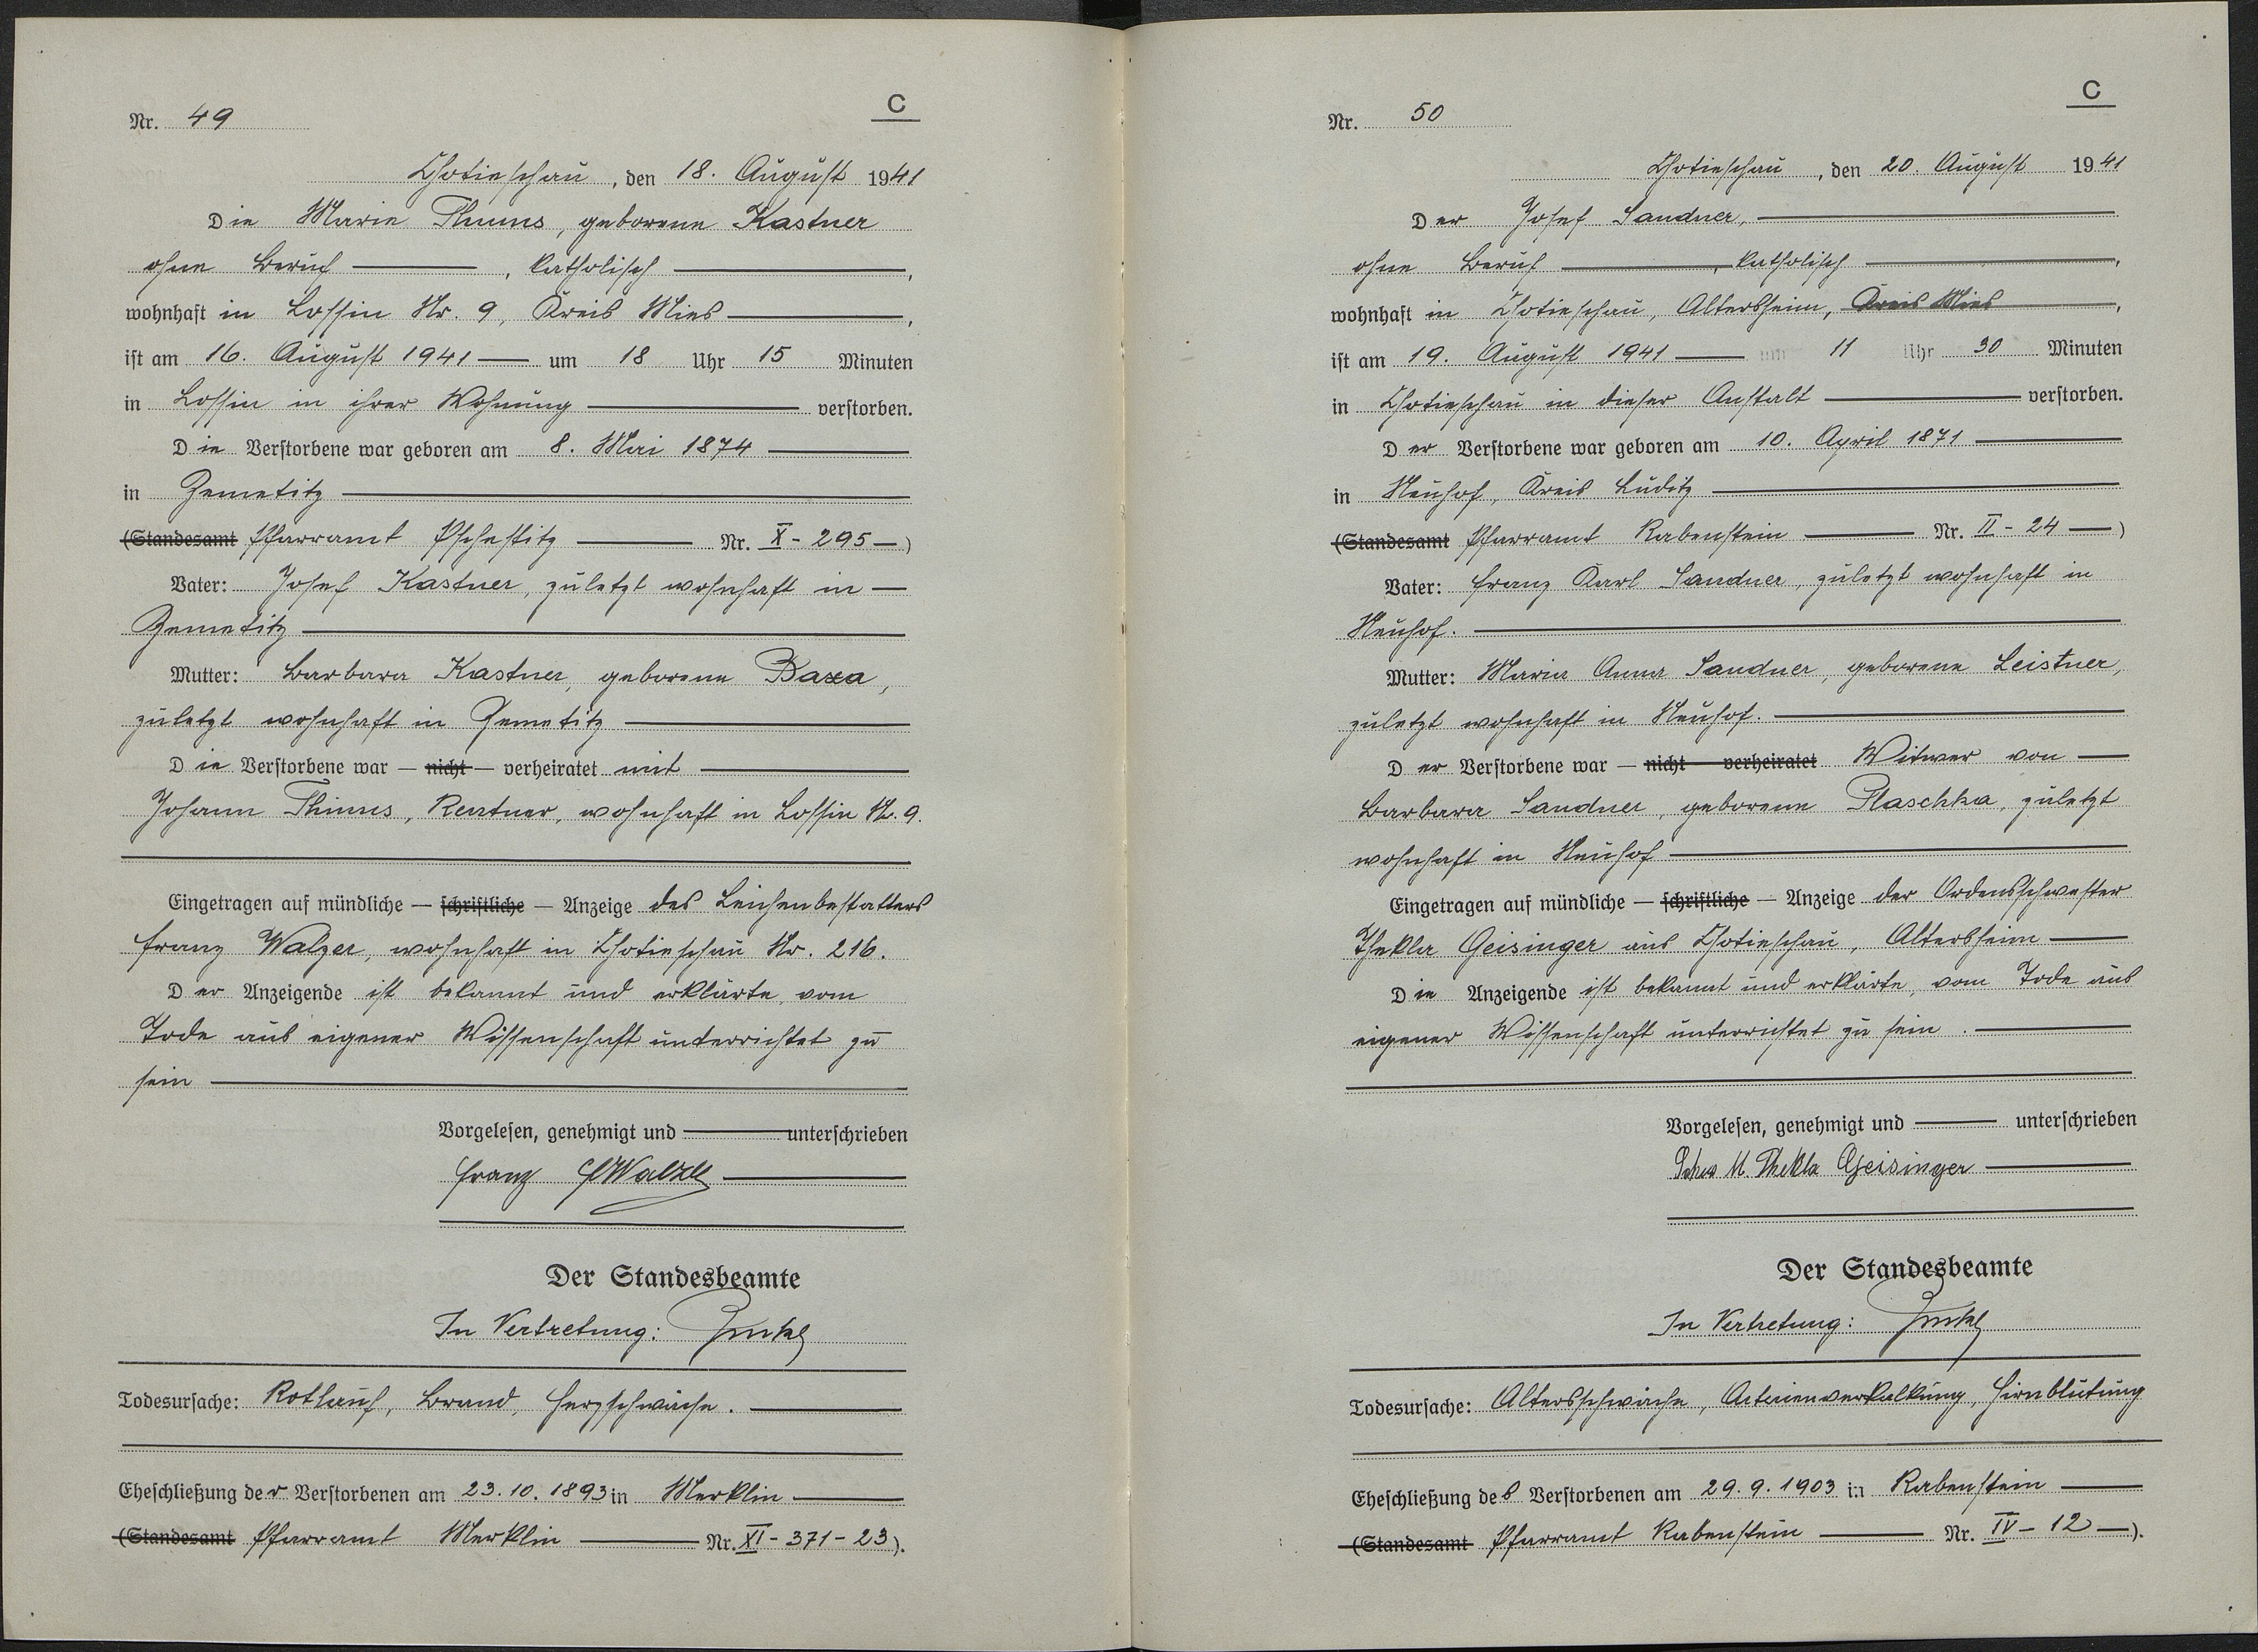 C
Nr. 49
Chotieschau, den 18. August 1941
Die Marie Thums, geborene Kastner
ohne Beruf, katholisch,
wohnhaft in Lossin Nr. 9, Kreis Mies,
ist am 16. August 1941 um 18 Uhr 15 Minuten
in Lossin in ihrer Wohnung verstorben.
Die Verstorbene war geboren am 8. Mai 1874
in Zemetitz
(Standesamt Pfarramt Pschestitz Nr. X - 295 )
Vater: Josef Kastner, zuletzt wohnhaft in
Zemetitz
Mutter: Barbara Kastner, geborene Baxa,
zuletzt wohnhaft in Zemetitz
Die Verstorbene war — nicht — verheiratet mit
Johann Thums, Rentner, wohnhaft in Lossin Nr. 9.
Eingetragen auf mündliche — schriftliche — Anzeige des Leichenbestatters
Franz Walzer, wohnhaft in Chotieschau Nr. 216.
Der Anzeigende ist bekannt und erklärte, vom
Tode aus eigener Wissenschaft unterrichtet zu
sein
Vorgelesen, genehmigt und unterschrieben
Franz
Der Standesbeamte
In Vertretung:
Todesursache: Rotlauf, Brand, Herzschwäche.
Eheschließung der Verstorbenen am 23.10.1893 in Merklin
(Standesamt Pfarramt Merklin Nr. XI - 371 - 23).
C
Nr. 50
Chotieschau, den 20. August 1941
Der Josef Sandner,
ohne Beruf, katholisch,
wohnhaft in Chotieschau, Altersheim, Kreis Mies,
ist am 19. August 1941 um 11 Uhr 30 Minuten
in Chotieschau in dieser Anstalt verstorben.
Der Verstorbene war geboren am 10. April 1871
in Neuhof, Kreis Luditz
(Standesamt Pfarramt Rabenstein Nr. II - 24 )
Vater: Franz Karl Sandner, zuletzt wohnhaft in
Neuhof.
Mutter: Maria Anna Sandner, geborene Leistner,
zuletzt wohnhaft in Neuhof.
Der Verstorbene war — nicht verheiratet Witwer von
Barbara Sandner, geborene Plaschka, zuletzt
wohnhaft in Neuhof
Eingetragen auf mündliche — schriftliche — Anzeige der Ordensschwester
Thekla Geisinger aus Chotieschau, Altersheim
Die Anzeigende ist bekannt und erklärte, vom Tode aus
eigener Wissenschaft unterrichtet zu sein.
Vorgelesen, genehmigt und unterschrieben
M. Thekla Geisinger
Der Standesbeamte
In Vertretung:
Todesursache: Altersschwäche, Arterienverkalkung, Hirnblutung
Eheschließung des Verstorbenen am 29.9.1903 in Rabenstein
(Standesamt Pfarramt Rabenstein Nr. IV - 12 ).